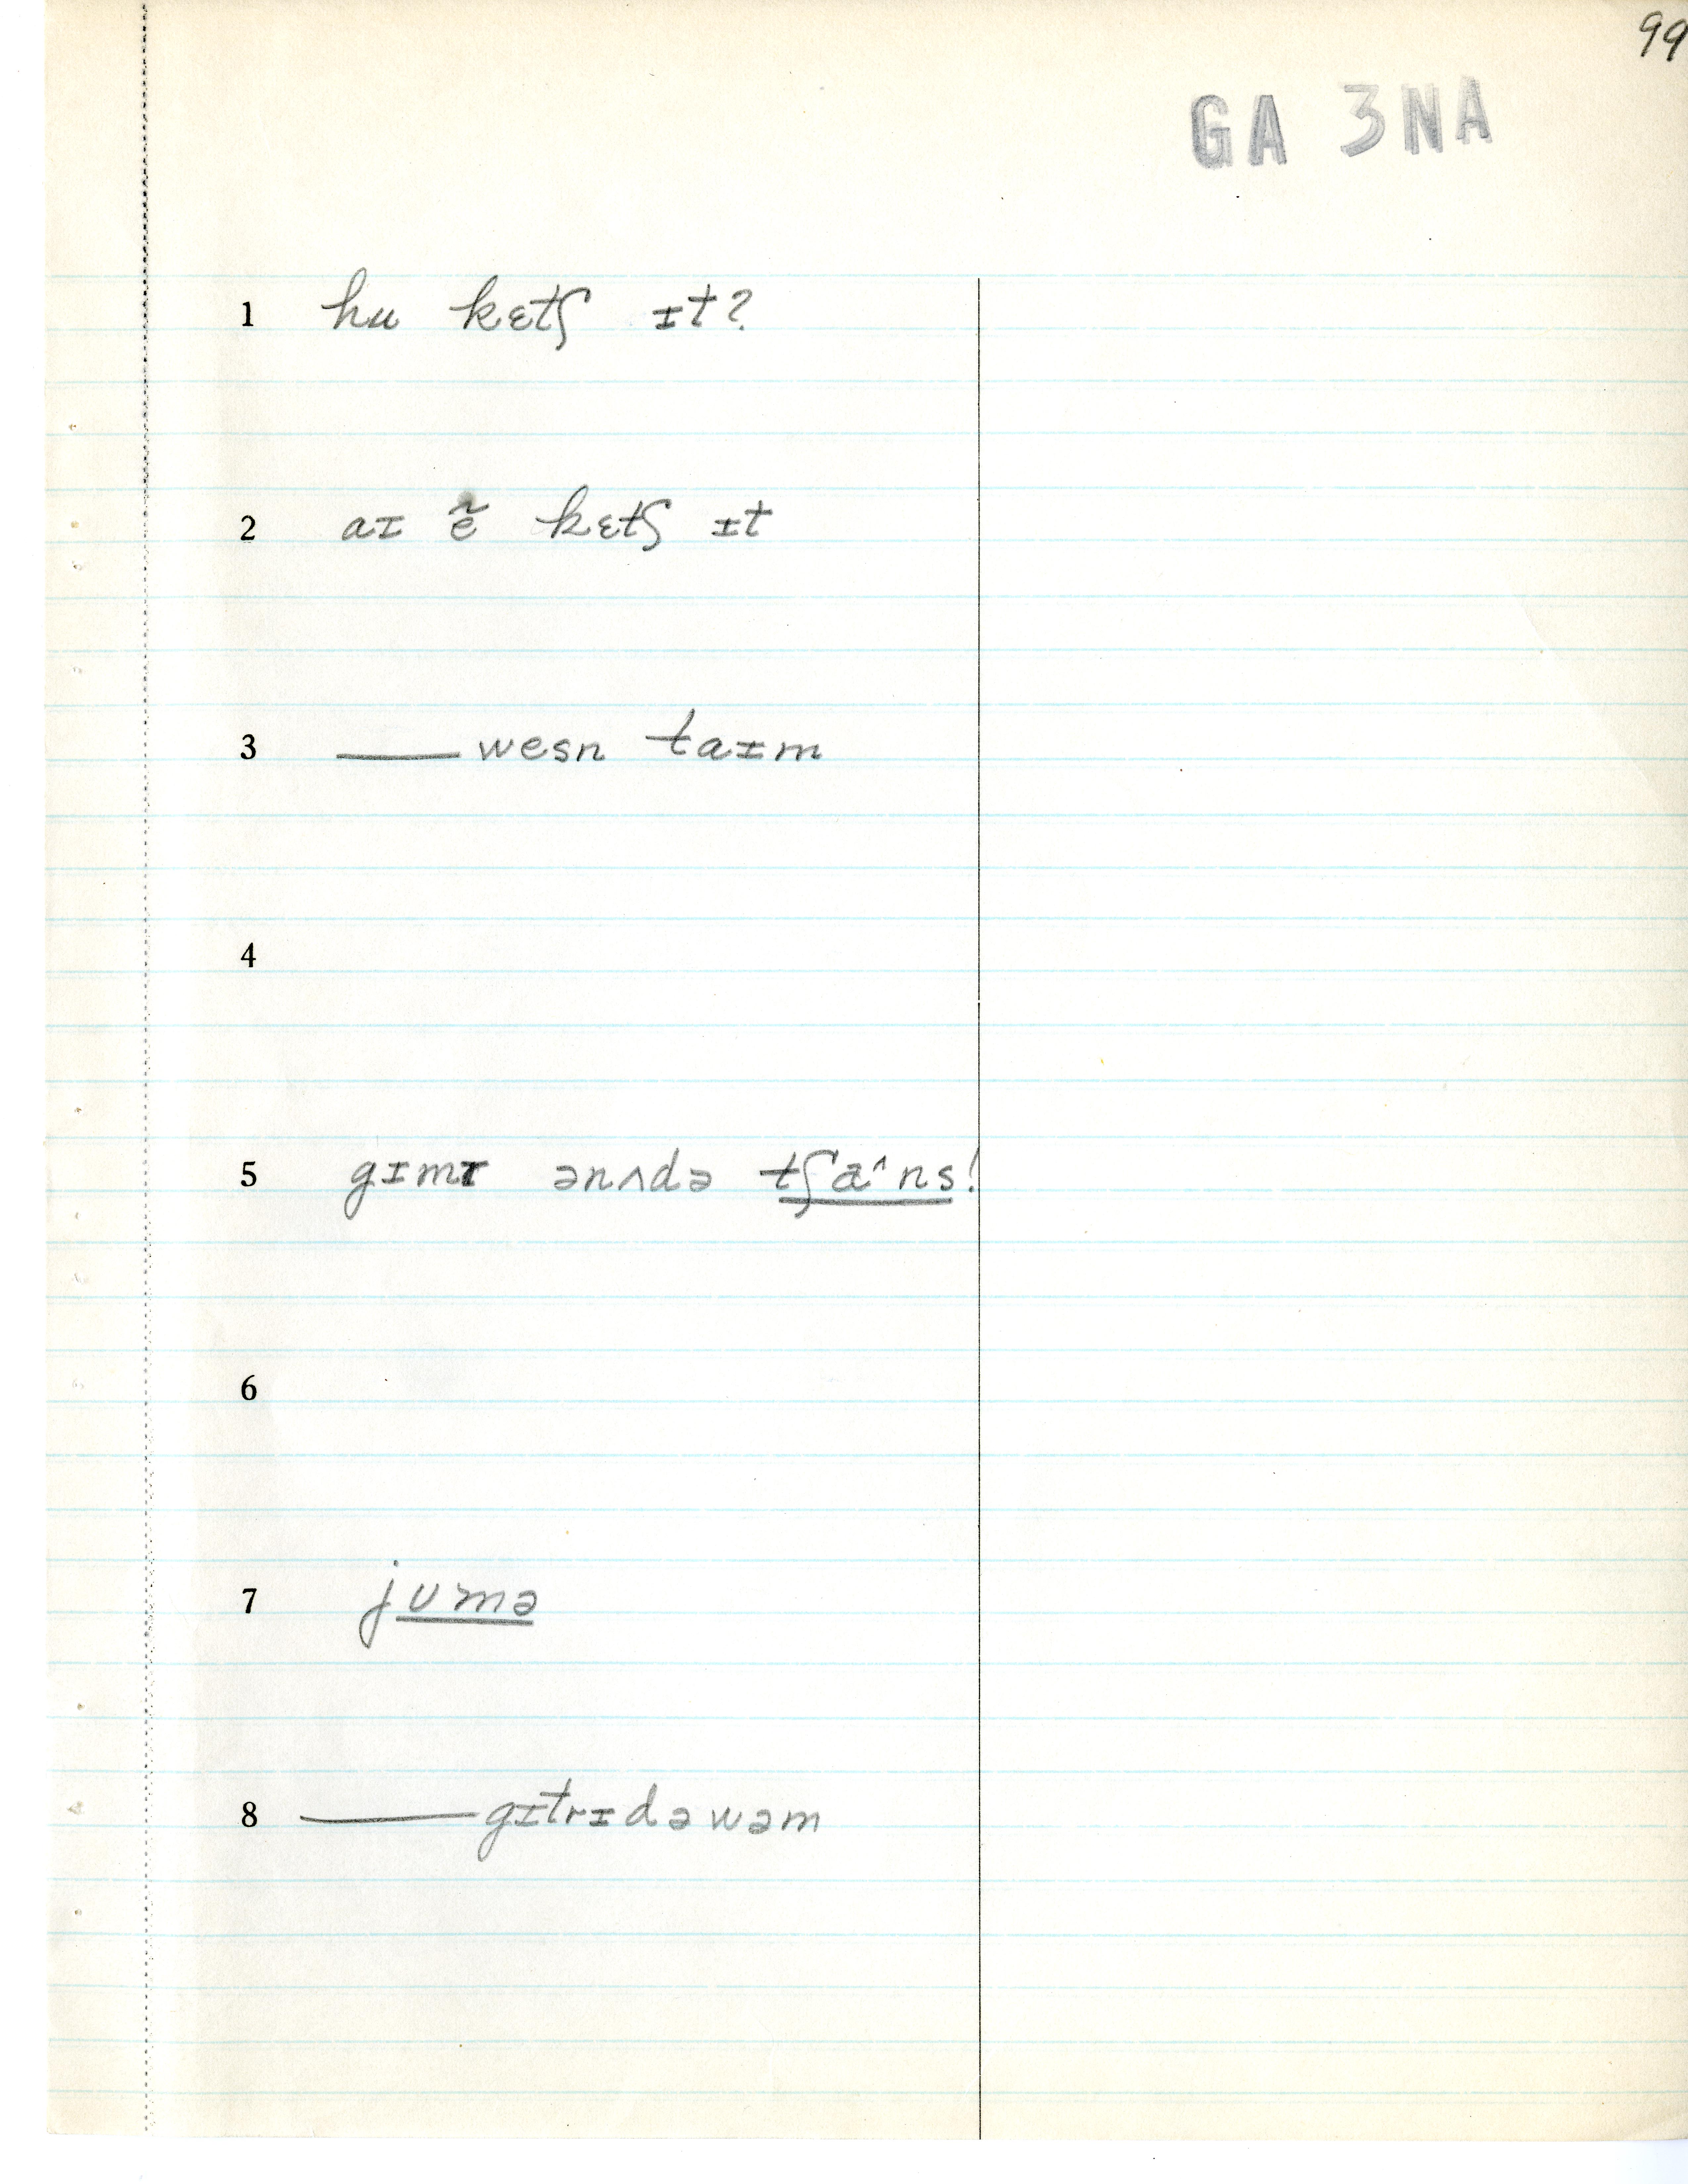 99
GA 3NA
1 hu kɛtʃ ɪt?
2 aɪ ẽ kɛtʃ ɪt
3 ____ wesn taɪm
4
5 gɪmɪ ənʌdə tʃæ^ns!
6
7 jʊmə
8 ____ gɪtrɪdəwəm